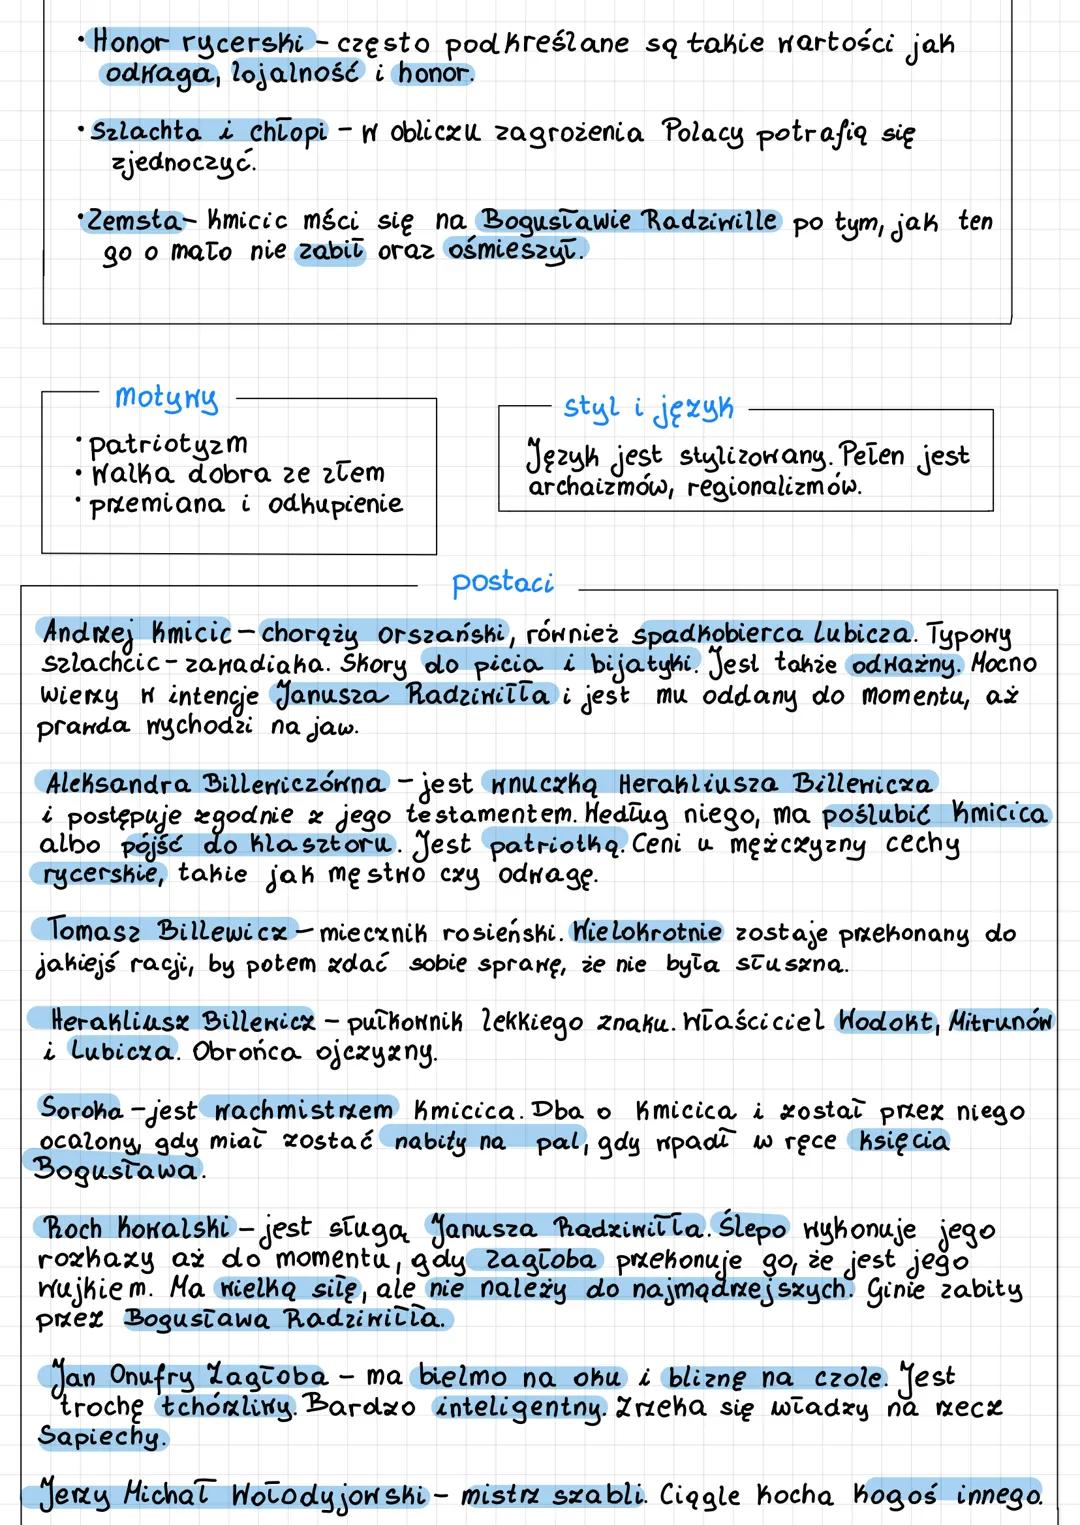 • Honor rycerski – często podkreślane są takie wartości jak
odwaga, lojalność i honor.
• Szlachta i chłopi – w obliczu zagrożenia Polacy potrafią się
zjednoczyć.
• Zemsta – Kmicic mści się na Bogusławie Radziwille po tym, jak ten
go o mało nie zabił oraz ośmieszył.
motywy
• patriotyzm
• walka dobra ze złem
• przemiana i odkupienie
styl i język
Język jest stylizowany. Pełen jest
archaizmów, regionalizmów.
postaci
Andrzej Kmicic – chorąży orszański, również spadkobierca Lubicza. Typowy
szlachcic – zawadiaka. Skory do picia i bijatyki. Jest także odważny. Mocno
wierzy w intencje Janusza Radziwiłła i jest mu oddany do momentu, aż
prawda wychodzi na jaw.
Aleksandra Billewiczówna – jest wnuczką Herakliusza Billewicza
i postępuje zgodnie z jego testamentem. Według niego, ma poślubić Kmicica
albo pójść do klasztoru. Jest patriotką. Ceni u mężczyzny cechy
rycerskie, takie jak męstwo czy odwagę.
Tomasz Billewicz – miecznik rosieński. Wielokrotnie zostaje przekonany do
jakiejś racji, by potem zdać sobie sprawę, że nie była słuszna.
Herakliusz Billewicz – pułkownik lekkiego znaku. Właściciel Wodokt, Mitrunów
i Lubicza. Obrońca ojczyzny.
Soroka – jest wachmistrzem Kmicica. Dba o Kmicica i został przez niego
ocalony, gdy miał zostać nabity na pal, gdy wpadł w ręce księcia
Bogusława.
Roch Kowalski – jest sługą Janusza Radziwiłła. Ślepo wykonuje jego
rozkazy aż do momentu, gdy Zagłoba przekonuje go, że jest jego
wujkiem. Ma wielką siłę, ale nie należy do najmądrzejszych. Ginie zabity
przez Bogusława Radziwiłła.
Jan Onufry Zagłoba – ma bielmo na oku i bliznę na czole. Jest
trochę tchórzliwy. Bardzo inteligentny. Zrzeka się władzy na rzecz
Sapiechy.
Jerzy Michał Wołodyjowski – mistrz szabli. Ciągle kocha kogoś innego.